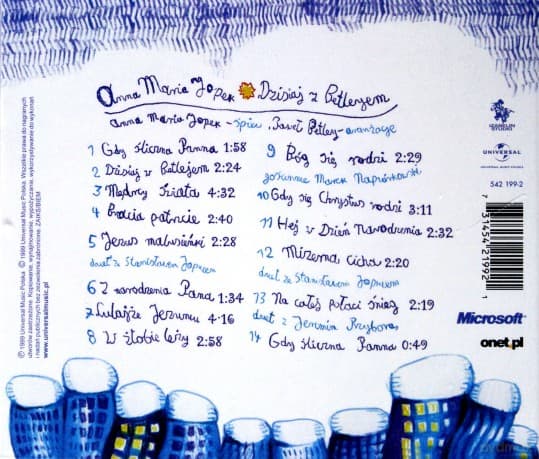 anna Maria Jopek Dzisiaj z Betleyem
anna Maria Jopek - śpiew, Paweł Betley - aranżacje
1 Gdy śliczna Panna 1:58
2 Dzisiaj w Betlejem 2:24
3 Mędrcy świata 4:32
4 Bracia patrzcie 2:40
5 Jezus malusieńki 2:28
duet ze Stanisławem Jopkiem
6 Z narodzenia Pana 1:34
7 Lulajże Jezuniu 4:16
8 W żłobie leży 2:58
9 Bóg się rodzi 2:29
gościnnie Marek Napiórkowski
10 Gdy się Chrystus rodzi 3:11
11 Hej w Dzień Narodzenia 2:32
12 Mizerna cicha 2:20
duet ze Stanisławem Jopkiem
13 Na całej połaci śnieg 2:19
duet z Jeremim Przyborą
14 Gdy śliczna Panna 0:49
UNIVERSAL
UNIVERSAL MUSIC POLSKA
542 199-2
7 31454 21992 1
Microsoft
onet.pl
℗ 1999 Universal Music Polska © 1999 Universal Music Polska. Wszelkie prawa do nagranych
utworów zastrzeżone. Kopiowanie, wynajmowanie, wypożyczanie, wykorzystywanie do wykonań
i nadań publicznych bez zezwolenia zabronione. ZAIKS/BIEM
www.universalmusic.pl